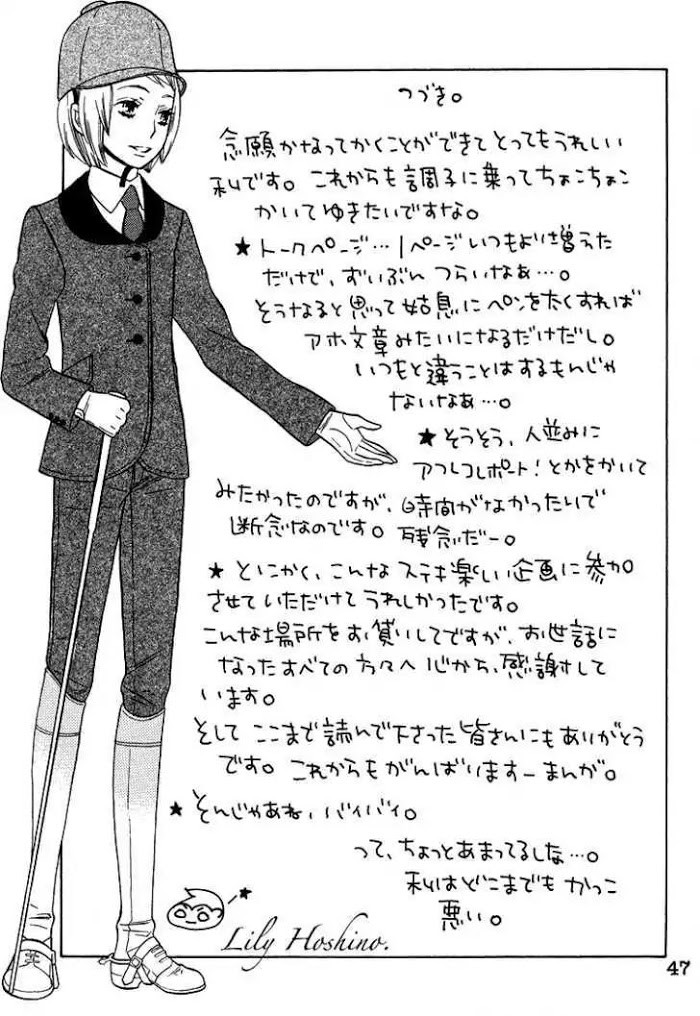 つづき。
念願かなってかくことができてとってもうれしい
私です。これからも調子に乗ってちょこちょこ
かいてゆきたいですな。
★トークページ…1ページいつもより増えた
だけで、ずいぶんつらいなぁ…。
そうなると思って姑息にペンを太くすれば
アホ文章みたいになるだけだし。
いつもと違うことはするもんじゃ
ないなぁ…。
★そうそう、人並みに
アフレコレポート!とかをかいて
みたかったのですが、時間がなかったいで
断念なのです。残念だー。
★とにかく、こんなステキ楽しい企画に参加
させていただけてうれしかったです。
こんな場所をお貸いしてですが、お世話に
なったすべての方々へ心から、感謝して
います。
そしてここまで読んで下さった皆さんにもありがとう
です。これからもがんばいますーまんが。
★そんじゃあね、バイバイ。
って、ちょっとあまってるしな…。
私はどこまでもかっこ
悪い。
Lily Hoshino.
47